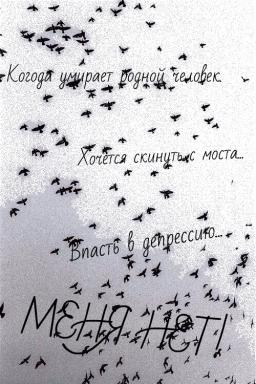 Когода умирает родной человек.
Хочется скинуться с моста...
Впасть в депрессию...
МЕНЯ НЕТ!